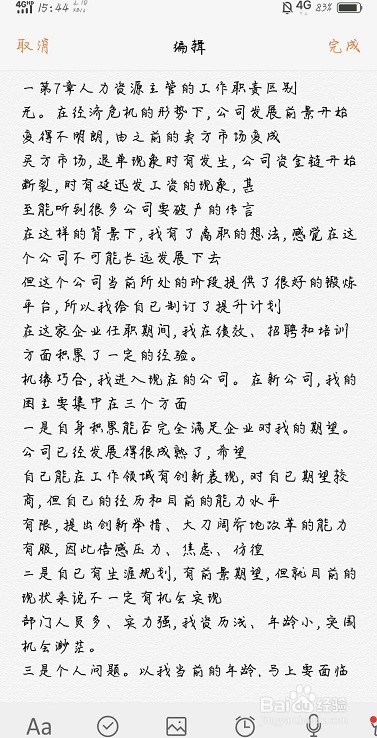 4GHD 15:44 4G 83%
取消 编辑 完成
一第7章人力资源主管的工作职责区别
元。在经济危机的形势下,公司发展前景开始
变得不明朗,由之前的卖方市场变成
买方市场,退单现象时有发生,公司资金链开始
断裂,时有延迟发工资的现象,甚
至能听到很多公司要破产的传言
在这样的背景下,我有了离职的想法,感觉在这
个公司不可能长远发展下去
但这个公司当前所处的阶段提供了很好的锻炼
平台,所以我给自己制订了提升计划
在这家企业任职期间,我在绩效、招聘和培训
方面积累了一定的经验。
机缘巧合,我进入现在的公司。在新公司,我的
困主要集中在三个方面
一是自身积累能否完全满足企业对我的期望。
公司已经发展得很成熟了,希望
自己能在工作领域有创新表现,对自己期望较
商,但自己的经历和目前的能力水平
有限,提出创新举措、大刀阔斧地改革的能力
有服,因此倍感压力、焦虑、彷徨
二是自己有生涯规划,有前景期望,但就目前的
现状来说不一定有机会实现
部门人员多、实力强,我资历浅、年龄小,突围
机会渺茫。
三是个人问题。以我当前的年龄,马上要面临
Aa
Baidu 经验